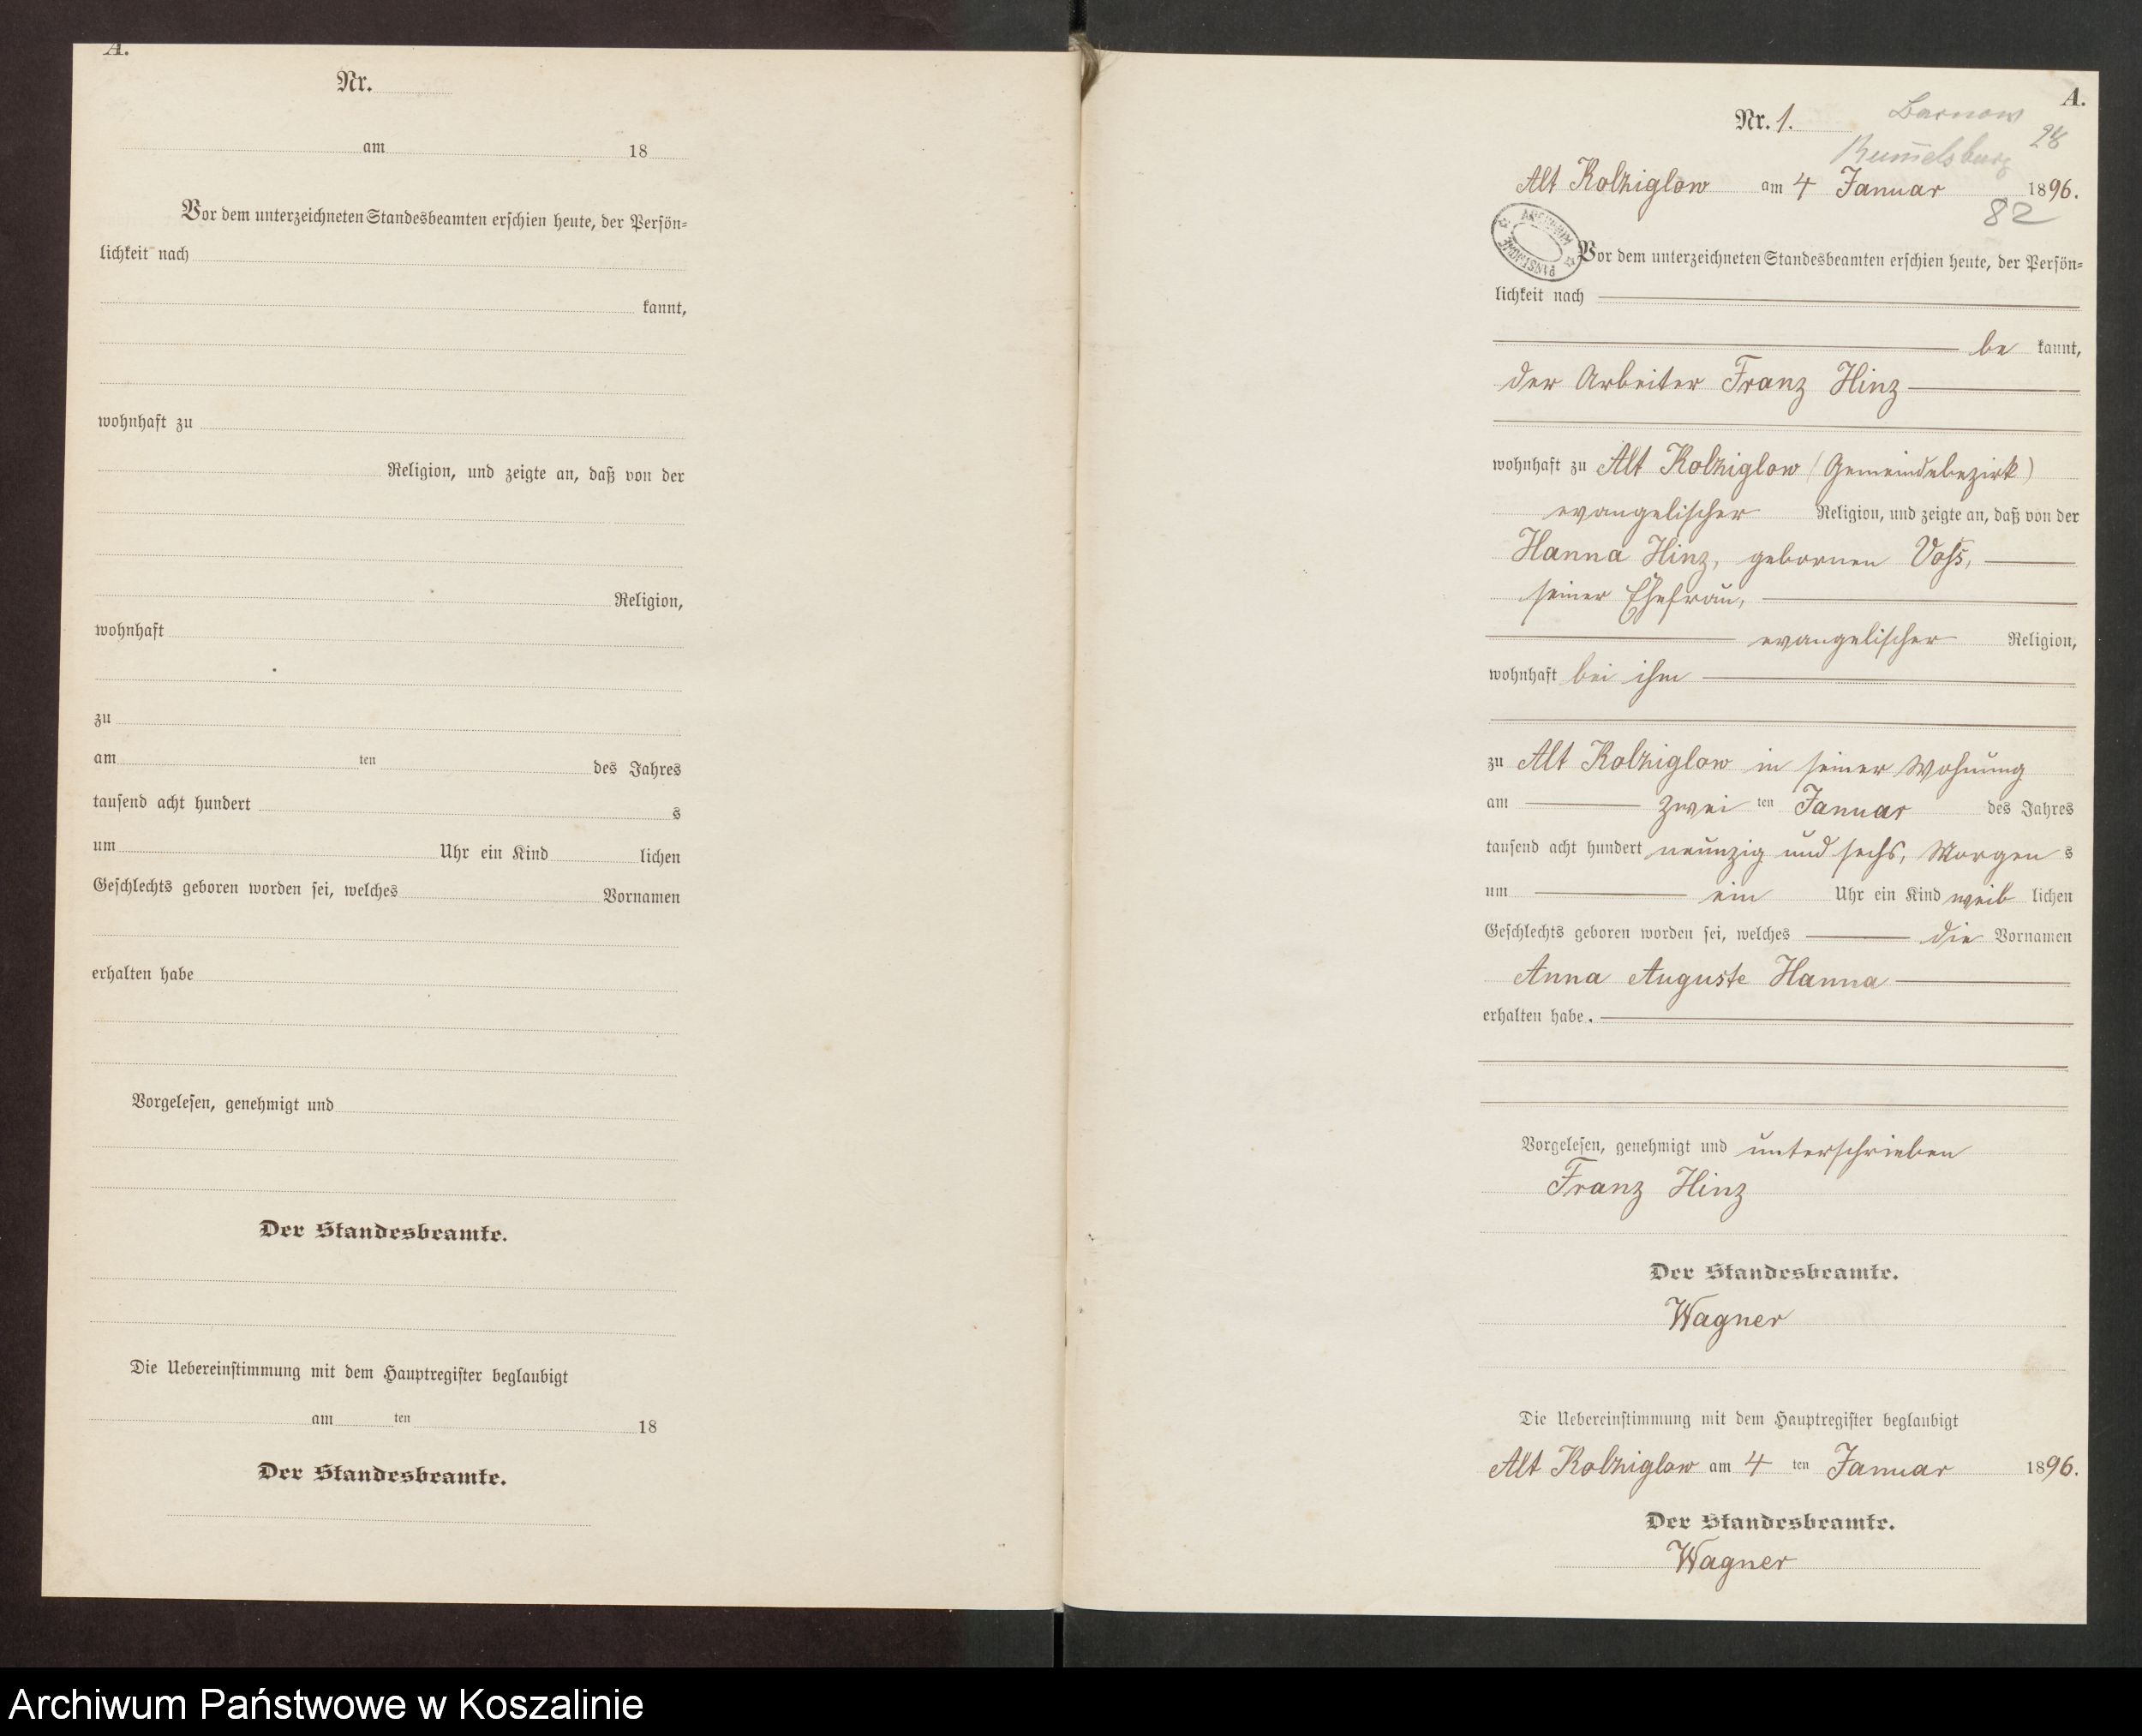 A.
Nr.
am 18
Vor dem unterzeichneten Standesbeamten erschien heute, der Persön=
lichkeit nach
kannt,
wohnhaft zu
Religion, und zeigte an, daß von der
Religion,
wohnhaft
zu
am ten des Jahres
tausend acht hundert s
um Uhr ein Kind lichen
Geschlechts geboren worden sei, welches Vornamen
erhalten habe
Vorgelesen, genehmigt und
Der Standesbeamte.
Die Uebereinstimmung mit dem Hauptregister beglaubigt
am ten 18
Der Standesbeamte.
A.
Barnow
Nr. 1.
Rummelsburg
Alt Kolziglow am 4 Januar 1896.
82
Vor dem unterzeichneten Standesbeamten erschien heute, der Persön=
lichkeit nach
be kannt,
der Arbeiter Franz Hinz
wohnhaft zu Alt Kolziglow (Gemeindebezirk)
evangelischer Religion, und zeigte an, daß von der
Hanna Hinz, gebornen Voß,
seiner Ehefrau,
evangelischer Religion,
wohnhaft bei ihm
zu Alt Kolziglow in seiner Wohnung
am zwei ten Januar des Jahres
tausend acht hundert neunzig und sechs, Morgen s
um ein Uhr ein Kind weib lichen
Geschlechts geboren worden sei, welches die Vornamen
Anna Auguste Hanna
erhalten habe.
Vorgelesen, genehmigt und unterschrieben
Franz Hinz
Der Standesbeamte.
Wagner
Die Uebereinstimmung mit dem Hauptregister beglaubigt
Alt Kolziglow am 4 ten Januar 1896.
Der Standesbeamte.
Wagner
Archiwum Państwowe w Koszalinie